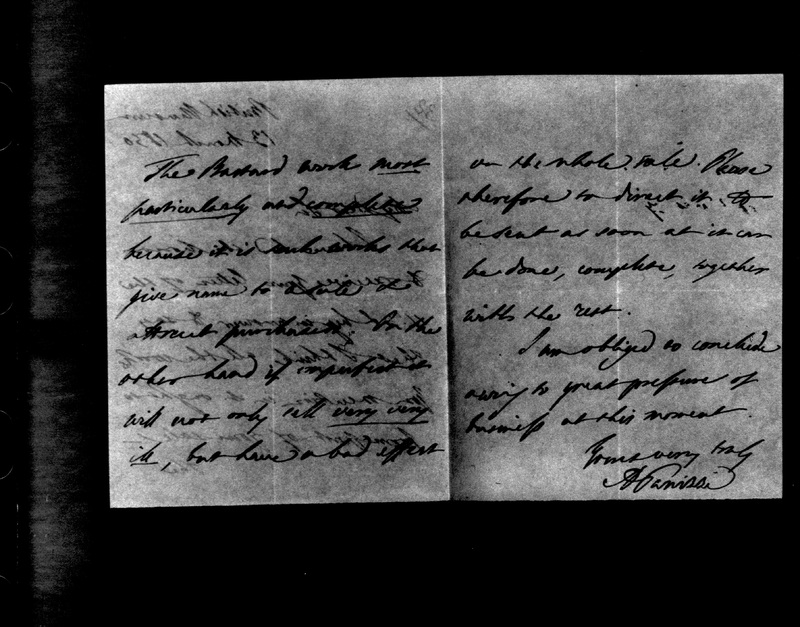 The Bastard work most
particularly and complete
because it is such works that
give name to a sale &
attract purchasers. On the
other hand if imperfect it
will not only sell very very
ill, but have a bad effect
on the whole sale. Please
therefore to direct it to
be sent as soon as it can
be done, complete, together
with the rest.
I am obliged to conclude
owing to great pressure of
business at this moment.
Yours very truly
A Panizzi